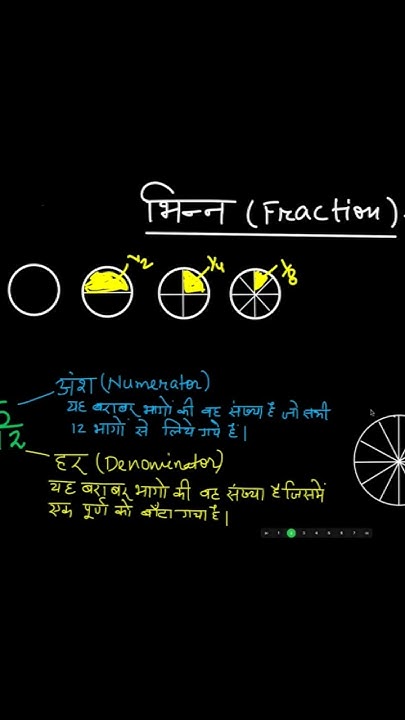 भिन्न (Fraction)
1/2 1/4 1/8
अंश (Numerator)
यह बराबर भागों की वह संख्या है जो सभी
12 भागों से लिये गये हैं।
5
12
हर (Denominator)
यह बराबर भागो की वह संख्या है जिसमें
एक पूर्ण को बाँटा गया है।